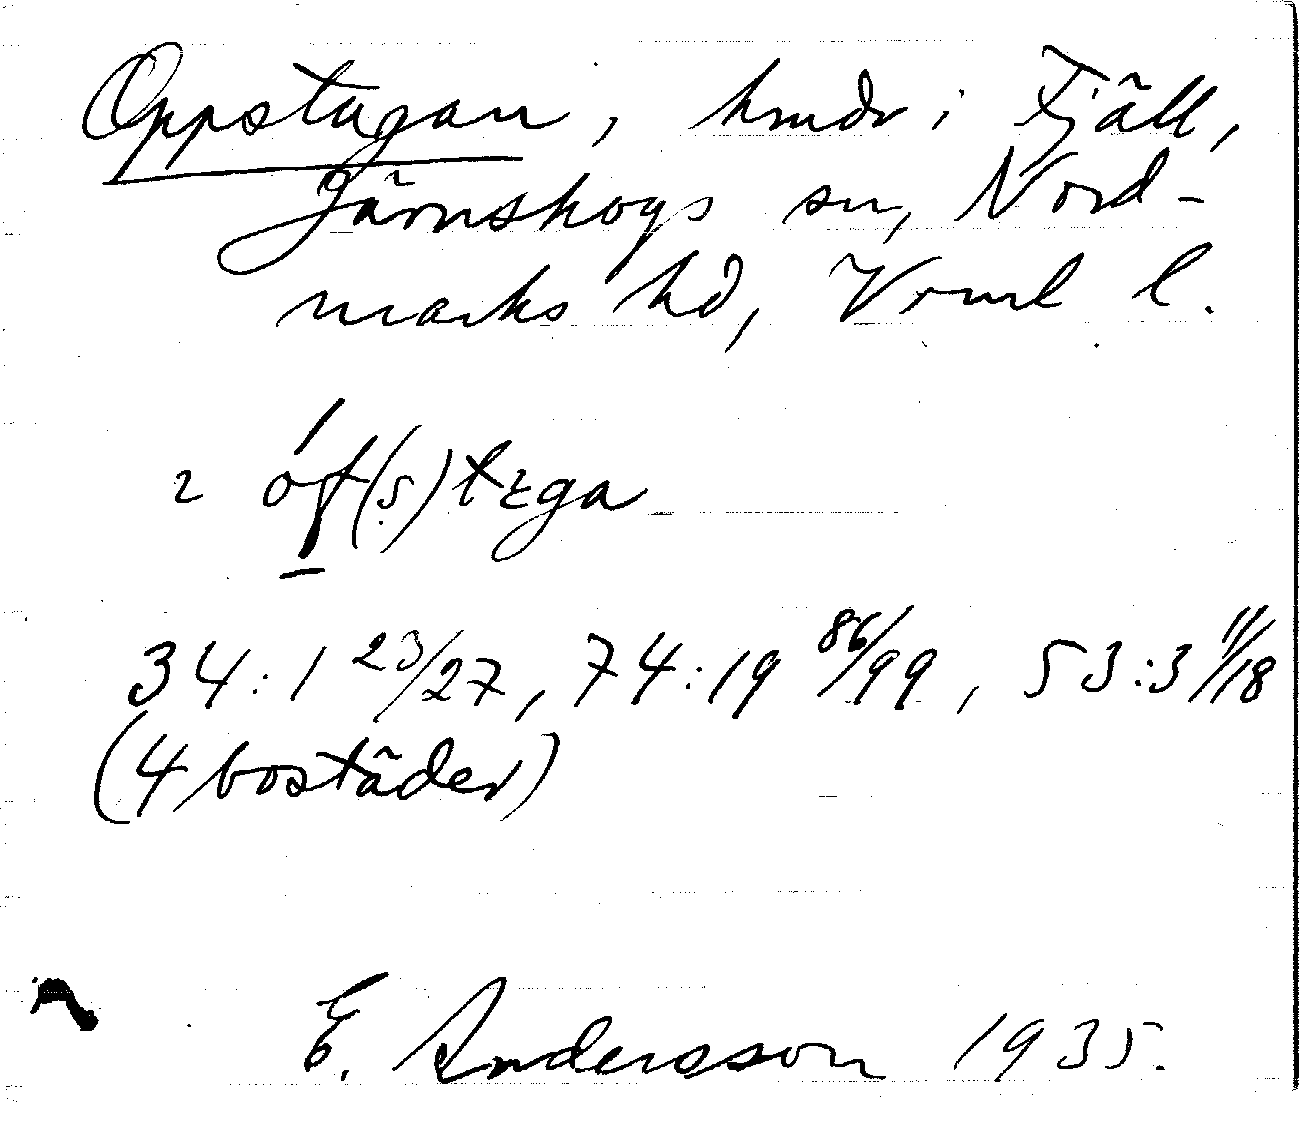 Oppstugan, hmdr i Fjäll,
Järnskogs sn, Nord-
marks hd, Vrml l.
2 óf(s)tega
34:1 23/27, 74:19 86/99, 53:3 11/18
(4 bostäder)
E. Andersson 1935.